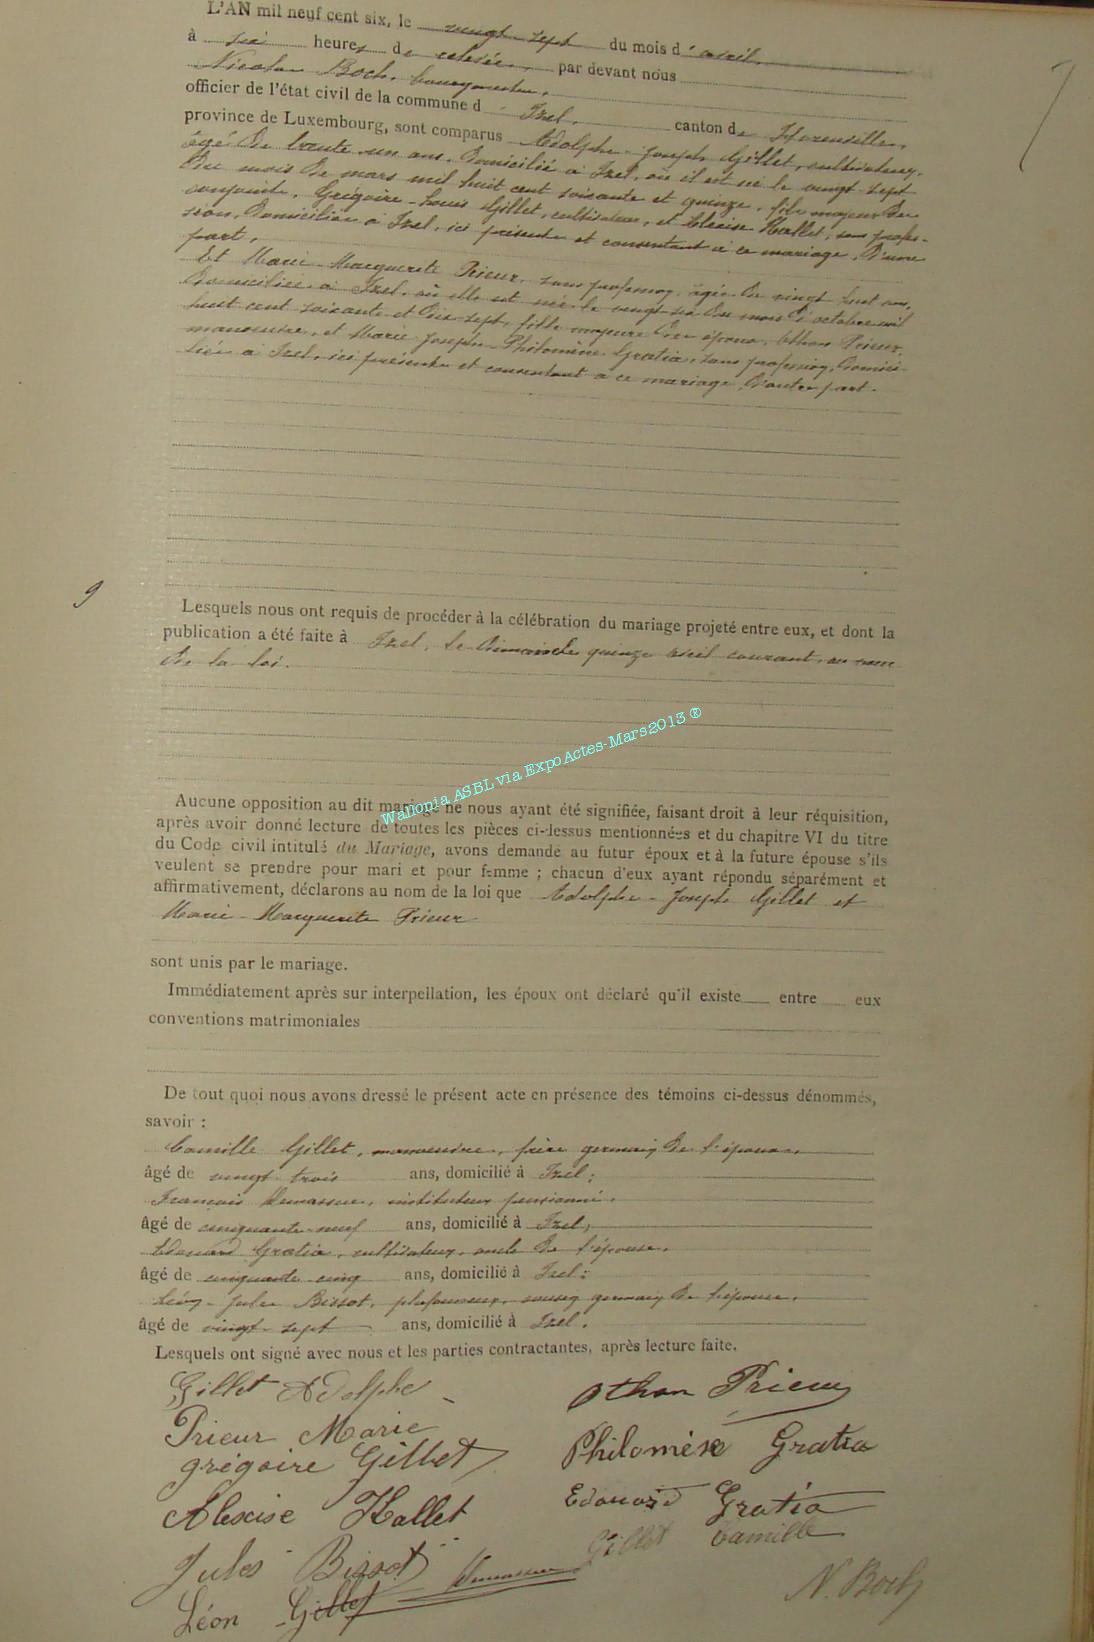 L'AN mil neuf cent six, le vingt sept du mois d'avril,
à six heures de relevée, par devant nous
Nicolas Boch, bourgmestre,
officier de l'état civil de la commune d Izel, canton de Florenville,
province de Luxembourg, sont comparus Adolphe-Joseph Gillet, cultivateur,
âgé de trente un ans, domicilié à Izel, où il est né le vingt sept
du mois de mars mil huit cent soixante et quinze, fils majeur des
conjoints, Grégoire-Louis Gillet, cultivateur, et Alexise Hallet, sans profes-
sion, domiciliés à Izel, ici présents et consentant à ce mariage, d'une
part,
Et Marie-Marguerite Prieur, sans profession, âgée de vingt huit ans,
domiciliée à Izel, où elle est née le vingt six du mois d'octobre mil
huit cent soixante et dix-sept, fille majeure des époux, Othon Prieur,
manoeuvre, et Marie-Joseph-Philomène Gratia, sans profession, domici-
liés à Izel, ici présents et consentant à ce mariage, d'autre part.
9
Lesquels nous ont requis de procéder à la célébration du mariage projeté entre eux, et dont la
publication a été faite à Izel, le dimanche quinze avril courant, au vœu
de la loi.
Wallonia ASBL via ExpoActes-Mars2013 ®
Aucune opposition au dit mariage ne nous ayant été signifiée, faisant droit à leur réquisition,
après avoir donné lecture de toutes les pièces ci-dessus mentionnées et du chapitre VI du titre
du Code civil intitulé du Mariage, avons demandé au futur époux et à la future épouse s'ils
veulent se prendre pour mari et pour femme ; chacun d'eux ayant répondu séparément et
affirmativement, déclarons au nom de la loi que Adolphe-Joseph Gillet et
Marie-Marguerite Prieur
sont unis par le mariage.
Immédiatement après sur interpellation, les époux ont déclaré qu'il existe entre eux
conventions matrimoniales
De tout quoi nous avons dressé le présent acte en présence des témoins ci-dessus dénommés,
savoir :
Camille Gillet, manoeuvre, frère germain de l'époux,
âgé de vingt trois ans, domicilié à Izel;
François Lemasson, instituteur pensionné,
âgé de cinquante-neuf ans, domicilié à Izel;
Edouard Gratia, cultivateur, oncle de l'épouse,
âgé de cinquante cinq ans, domicilié à Izel;
Jules Bissot, plafonneur, cousin germain de l'épouse,
âgé de vingt-sept ans, domicilié à Izel.
Lesquels ont signé avec nous et les parties contractantes, après lecture faite.
Gillet Adolphe Othon Prieur
Prieur Marie
grégoire Gillet Philomène Gratia
Alexise Hallet Edouard Gratia
Jules Bissot Gillet Camille
Léon Gillet N. Boch